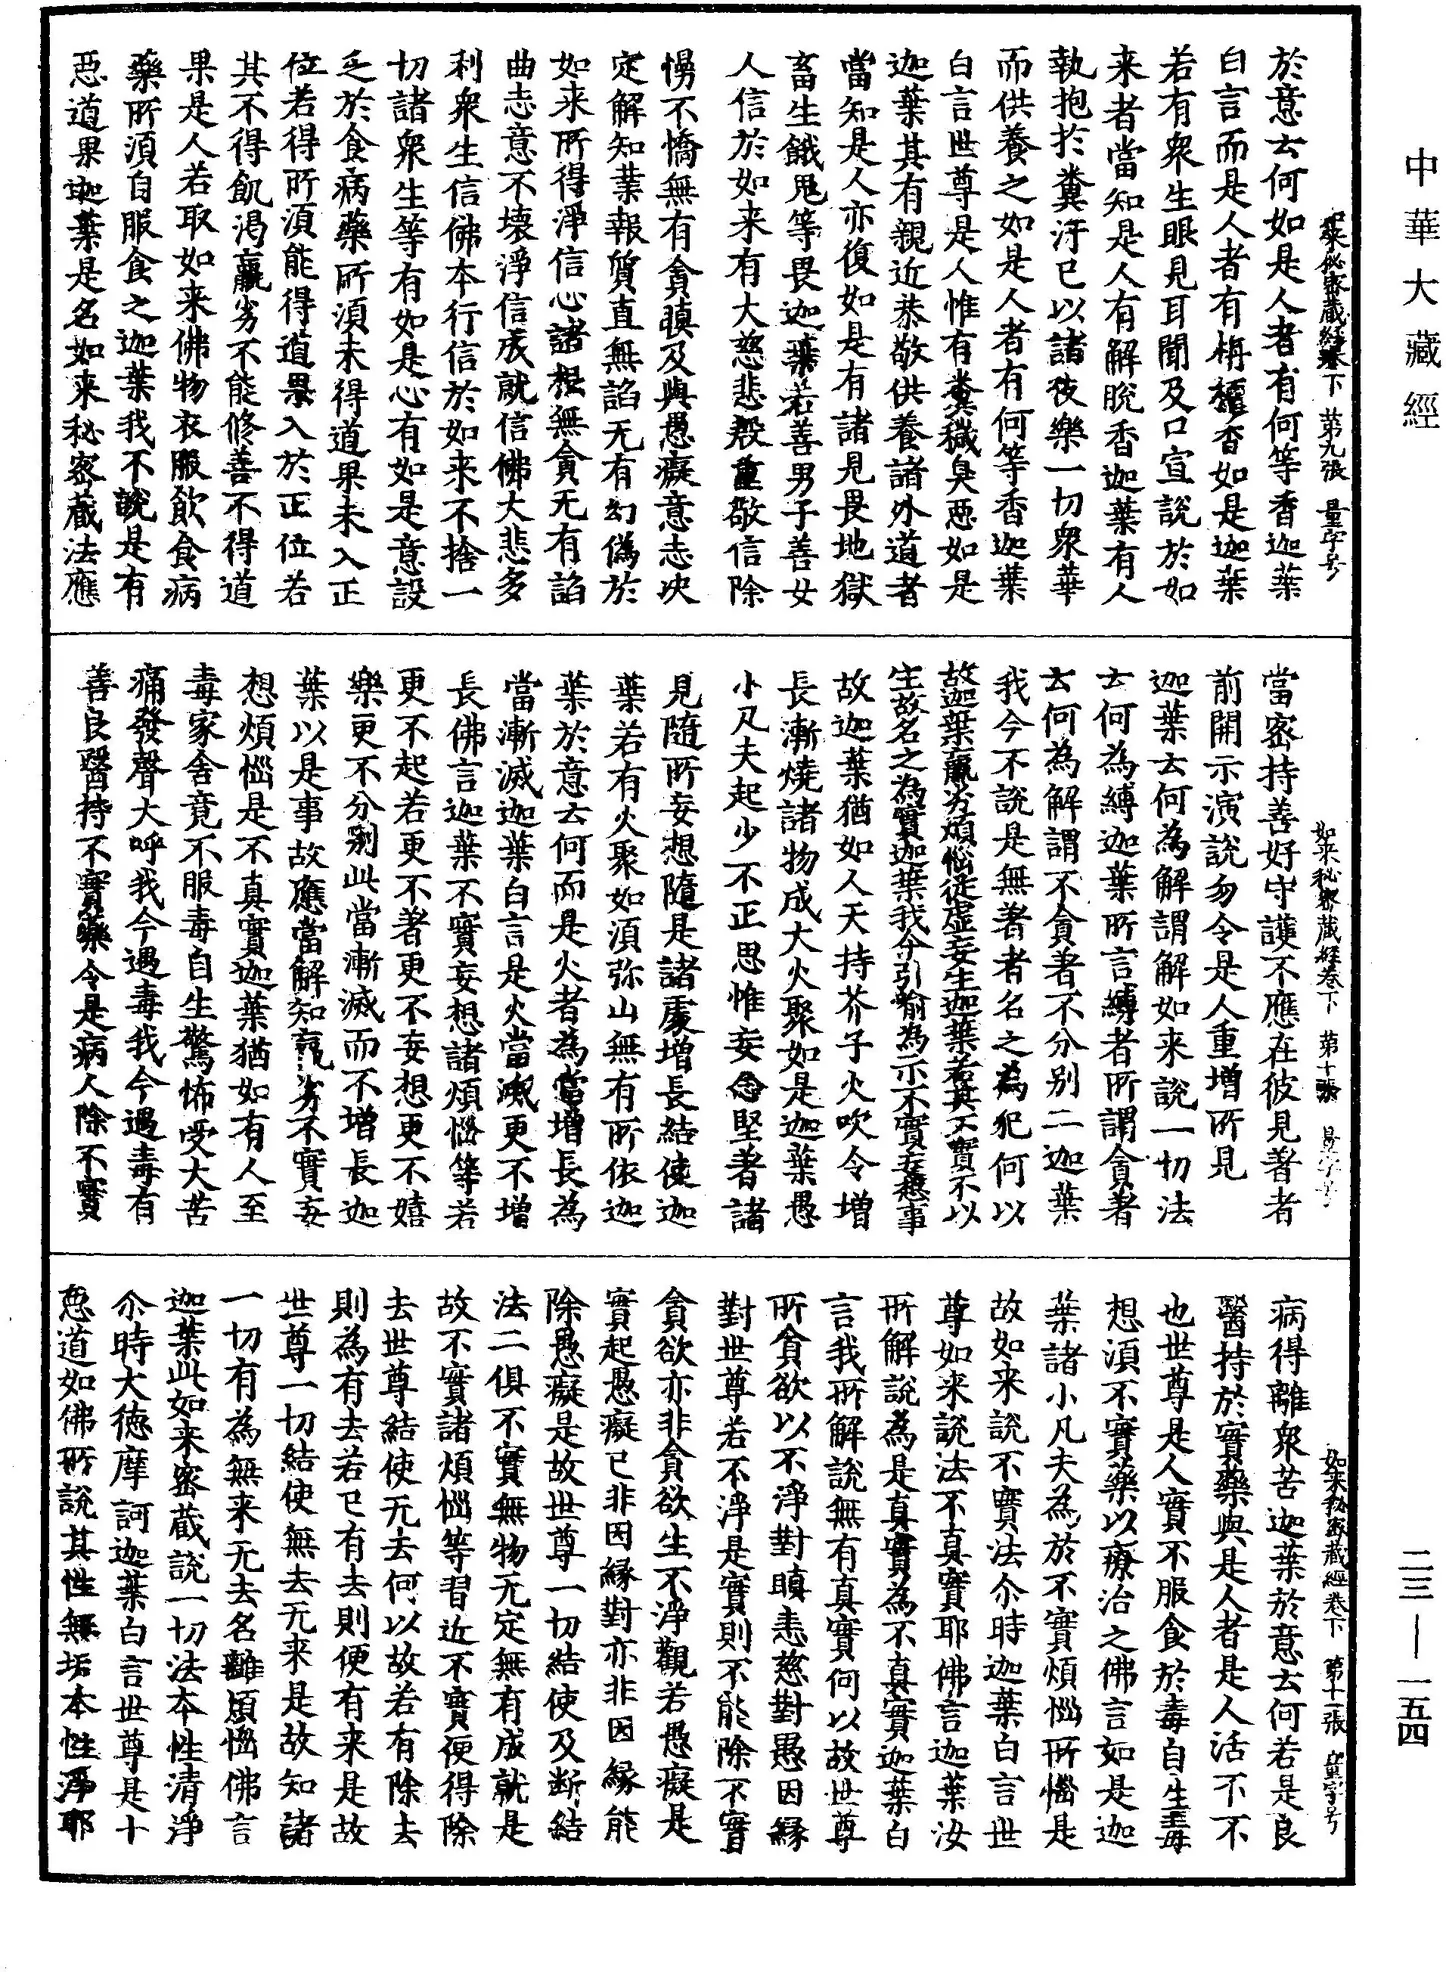 中華大藏經
如来秘密藏經卷下 第九張 量字号
於意去何如是人者有何等香迦葉
白言而是人者有栴檀香如是迦葉
若有衆生眼見耳聞及口宣說於如
来者當知是人有解脫香迦葉有人
執抱於糞汙已以諸伎樂一切衆華
而供養之如是人者有何等香迦葉
白言世尊是人惟有糞穢臭惡如是
迦葉其有親近恭敬供養諸外道者
當知是人亦復如是有諸見畏地獄
畜生餓鬼等畏迦葉若善男子善女
人信於如来有大慈悲慇重敬信除
愓不憍無有貪瞋及與愚癡意志决
定解知業報質直無諂无有幻偽於
如来所得淨信心諸根無貪无有諂
曲志意不壞淨信成就信佛大悲多
利衆生信佛本行信於如来不捨一
切諸衆生等有如是心有如是意設
乏於食病藥所湏未得道果未入正
位若得所湏能得道果入於正位若
其不得飢渴羸劣不能修善不得道
果是人若取如来佛物衣服飲食病
藥所湏自服食之迦葉我不說是有
惡道果迦葉是名如来秘密藏法應
如来秘密藏經卷下 第十張 量字号
當密持善好守護不應在彼見著者
前開示演說勿令是人重增所見
迦葉去何為解謂解如来說一切法
去何為縛迦葉所言縛者所謂貪著
去何為解謂不貪著不分别二迦葉
我今不說是無著者名之為犯何以
故迦葉羸劣煩惱從虚妄生迦葉若其不實不以
生故名之為實迦葉我今引喻為示不實妄想事
故迦葉猶如人天持芥子火吹令增
長漸燒諸物成大火聚如是迦葉愚
小凡夫起少不正思惟妄念堅著諸
見隨所妄想隨是諸處增長結使迦
葉若有火聚如湏弥山無有所依迦
葉於意去何而是火者為當增長為
當漸滅迦葉白言是火當滅更不增
長佛言迦葉不實妄想諸煩惱等若
更不起若更不著更不妄想更不嬉
樂更不分别此當漸滅而不增長迦
葉以是事故應當解知羸劣不實妄
想煩惱是不真實迦葉猶如有人至
毒家舍竟不服毒自生驚怖受大苦
痛發聲大呼我今遇毒我今遇毒有
善良醫持不實藥令是病人除不實
如来秘密藏經卷下 第十一張 量字号
病得離衆苦迦葉於意去何若是良
醫持於實藥與是人者是人活不不
也世尊是人實不服食於毒自生毒
想湏不實藥以療治之佛言如是迦
葉諸小凡夫為於不實煩惱所惱是
故如来說不實法尒時迦葉白言世
尊如来說法不真實耶佛言迦葉汝
所解說為是真實為不真實迦葉白
言我所解說無有真實何以故世尊
所貪欲以不淨對瞋恚慈對愚因緣
對世尊若不淨是實則不能除不實
貪欲亦非貪欲生不淨觀若愚癡是
實起愚癡已非因緣對亦非因緣能
除愚癡是故世尊一切結使及断結
法二俱不實無物无定無有成就是
故不實諸煩惱等習近不實便得除
去世尊結使无去何以故若有除去
則為有去若已有去則便有来是故
世尊一切結使無去无来是故知諸
一切有為無来无去名離煩惱佛言
迦葉此如来密藏說一切法本性清淨
尒時大德摩訶迦葉白言世尊是十
惡道如佛所說其性無垢本性淨耶
二三—一五四